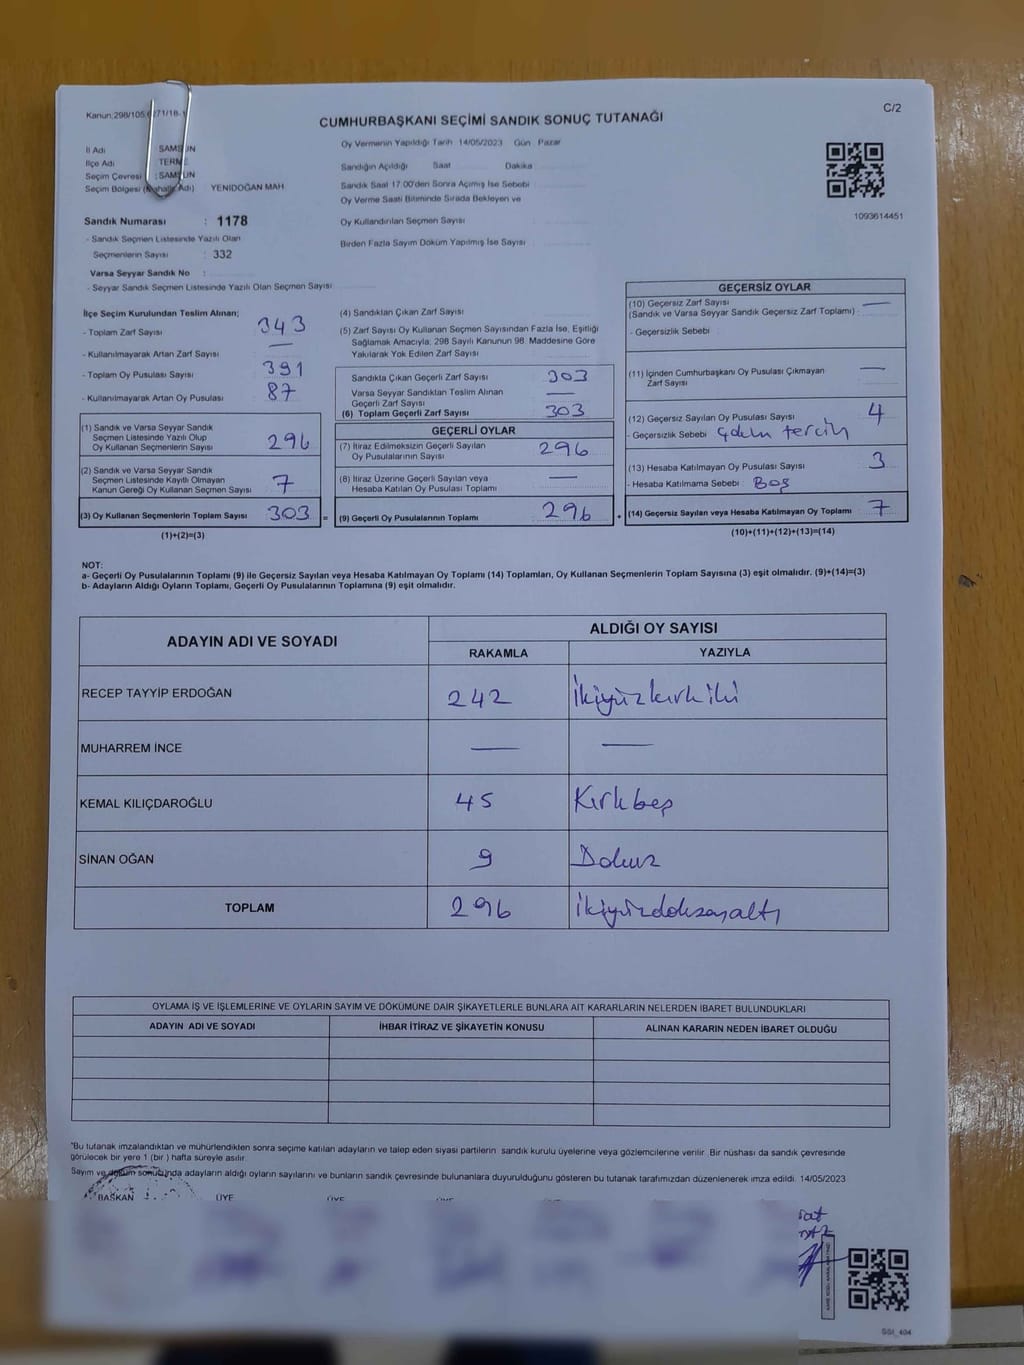 Kanun:298/105,6271/18-1
C/2
CUMHURBAŞKANI SEÇİMİ SANDIK SONUÇ TUTANAĞI
İl Adı : SAMSUN
İlçe Adı : TERME
Seçim Çevresi : SAMSUN
Seçim Bölgesi (Mahalle Adı) YENİDOĞAN MAH
Sandık Numarası : 1178
- Sandık Seçmen Listesinde Yazılı Olan
Seçmenlerin Sayısı : 332
Varsa Seyyar Sandık No :
- Seyyar Sandık Seçmen Listesinde Yazılı Olan Seçmen Sayısı
Oy Vermenin Yapıldığı Tarih 14/05/2023 Gün Pazar
Sandığın Açıldığı Saat Dakika
Sandık Saat 17:00'den Sonra Açımış İse Sebebi
Oy Verme Saati Bitiminde Sırada Bekleyen ve
Oy Kullandırılan Seçmen Sayısı
Birden Fazla Sayım Döküm Yapılmış İse Sayısı
1093614451
İlçe Seçim Kurulundan Teslim Alınan;
- Toplam Zarf Sayısı 343
- Kullanılmayarak Artan Zarf Sayısı —
- Toplam Oy Pusulası Sayısı 391
- Kullanılmayarak Artan Oy Pusulası 87
(1) Sandık ve Varsa Seyyar Sandık
Seçmen Listesinde Yazılı Olup
Oy Kullanan Seçmenlerin Sayısı 296
(2) Sandık ve Varsa Seyyar Sandık
Seçmen Listesinde Kayıtlı Olmayan
Kanun Gereği Oy Kullanan Seçmen Sayısı 7
(3) Oy Kullanan Seçmenlerin Toplam Sayısı 303 =
(1)+(2)=(3)
(4) Sandıktan Çıkan Zarf Sayısı
(5) Zarf Sayısı Oy Kullanan Seçmen Sayısından Fazla İse, Eşitliği
Sağlamak Amacıyla; 298 Sayılı Kanunun 98. Maddesine Göre
Yakılarak Yok Edilen Zarf Sayısı
Sandıkta Çıkan Geçerli Zarf Sayısı 303
Varsa Seyyar Sandıktan Teslim Alınan
Geçerli Zarf Sayısı —
(6) Toplam Geçerli Zarf Sayısı 303
GEÇERLİ OYLAR
(7) İtiraz Edilmeksizin Geçerli Sayılan
Oy Pusulalarının Sayısı 296
(8) İtiraz Üzerine Geçerli Sayılan veya
Hesaba Katılan Oy Pusulası Toplamı —
(9) Geçerli Oy Pusulalarının Toplamı 296 +
GEÇERSİZ OYLAR
(10) Geçersiz Zarf Sayısı
(Sandık ve Varsa Seyyar Sandık Geçersiz Zarf Toplamı) : —
- Geçersizlik Sebebi
(11) İçinden Cumhurbaşkanı Oy Pusulası Çıkmayan
Zarf Sayısı —
(12) Geçersiz Sayılan Oy Pusulası Sayısı 4
- Geçersizlik Sebebi tercih
(13) Hesaba Katılmayan Oy Pusulası Sayısı 3
- Hesaba Katılmama Sebebi : Boş
(14) Geçersiz Sayılan veya Hesaba Katılmayan Oy Toplamı 7
(10)+(11)+(12)+(13)=(14)
NOT:
a- Geçerli Oy Pusulalarının Toplamı (9) ile Geçersiz Sayılan veya Hesaba Katılmayan Oy Toplamı (14) Toplamları, Oy Kullanan Seçmenlerin Toplam Sayısına (3) eşit olmalıdır. (9)+(14)=(3)
b- Adayların Aldığı Oyların Toplamı, Geçerli Oy Pusulalarının Toplamına (9) eşit olmalıdır.
ADAYIN ADI VE SOYADI
ALDIĞI OY SAYISI
RAKAMLA YAZIYLA
RECEP TAYYİP ERDOĞAN 242 İkiyüzkırkiki
MUHARREM İNCE — —
KEMAL KILIÇDAROĞLU 45 Kırkbeş
SİNAN OĞAN 9 Dokuz
TOPLAM 296 İkiyüzdoksanaltı
OYLAMA İŞ VE İŞLEMLERİNE VE OYLARIN SAYIM VE DÖKÜMÜNE DAİR ŞİKAYETLERLE BUNLARA AİT KARARLARIN NELERDEN İBARET BULUNDUKLARI
ADAYIN ADI VE SOYADI İHBAR İTİRAZ VE ŞİKAYETİN KONUSU ALINAN KARARIN NEDEN İBARET OLDUĞU
"Bu tutanak imzalandıktan ve mühürlendikten sonra seçime katılan adayların ve talep eden siyasi partilerin sandık kurulu üyelerine veya gözlemcilerine verilir. Bir nüshası da sandık çevresinde
görülecek bir yere 1 (bir ) hafta süreyle asılır.
Sayım ve döküm sonucunda adayların aldığı oyların sayılarını ve bunların sandık çevresinde bulunanlara duyurulduğunu gösteren bu tutanak tarafımızdan düzenlenerek imza edildi. 14/05/2023
BAŞKAN ÜYE ÜYE
SSİ_404